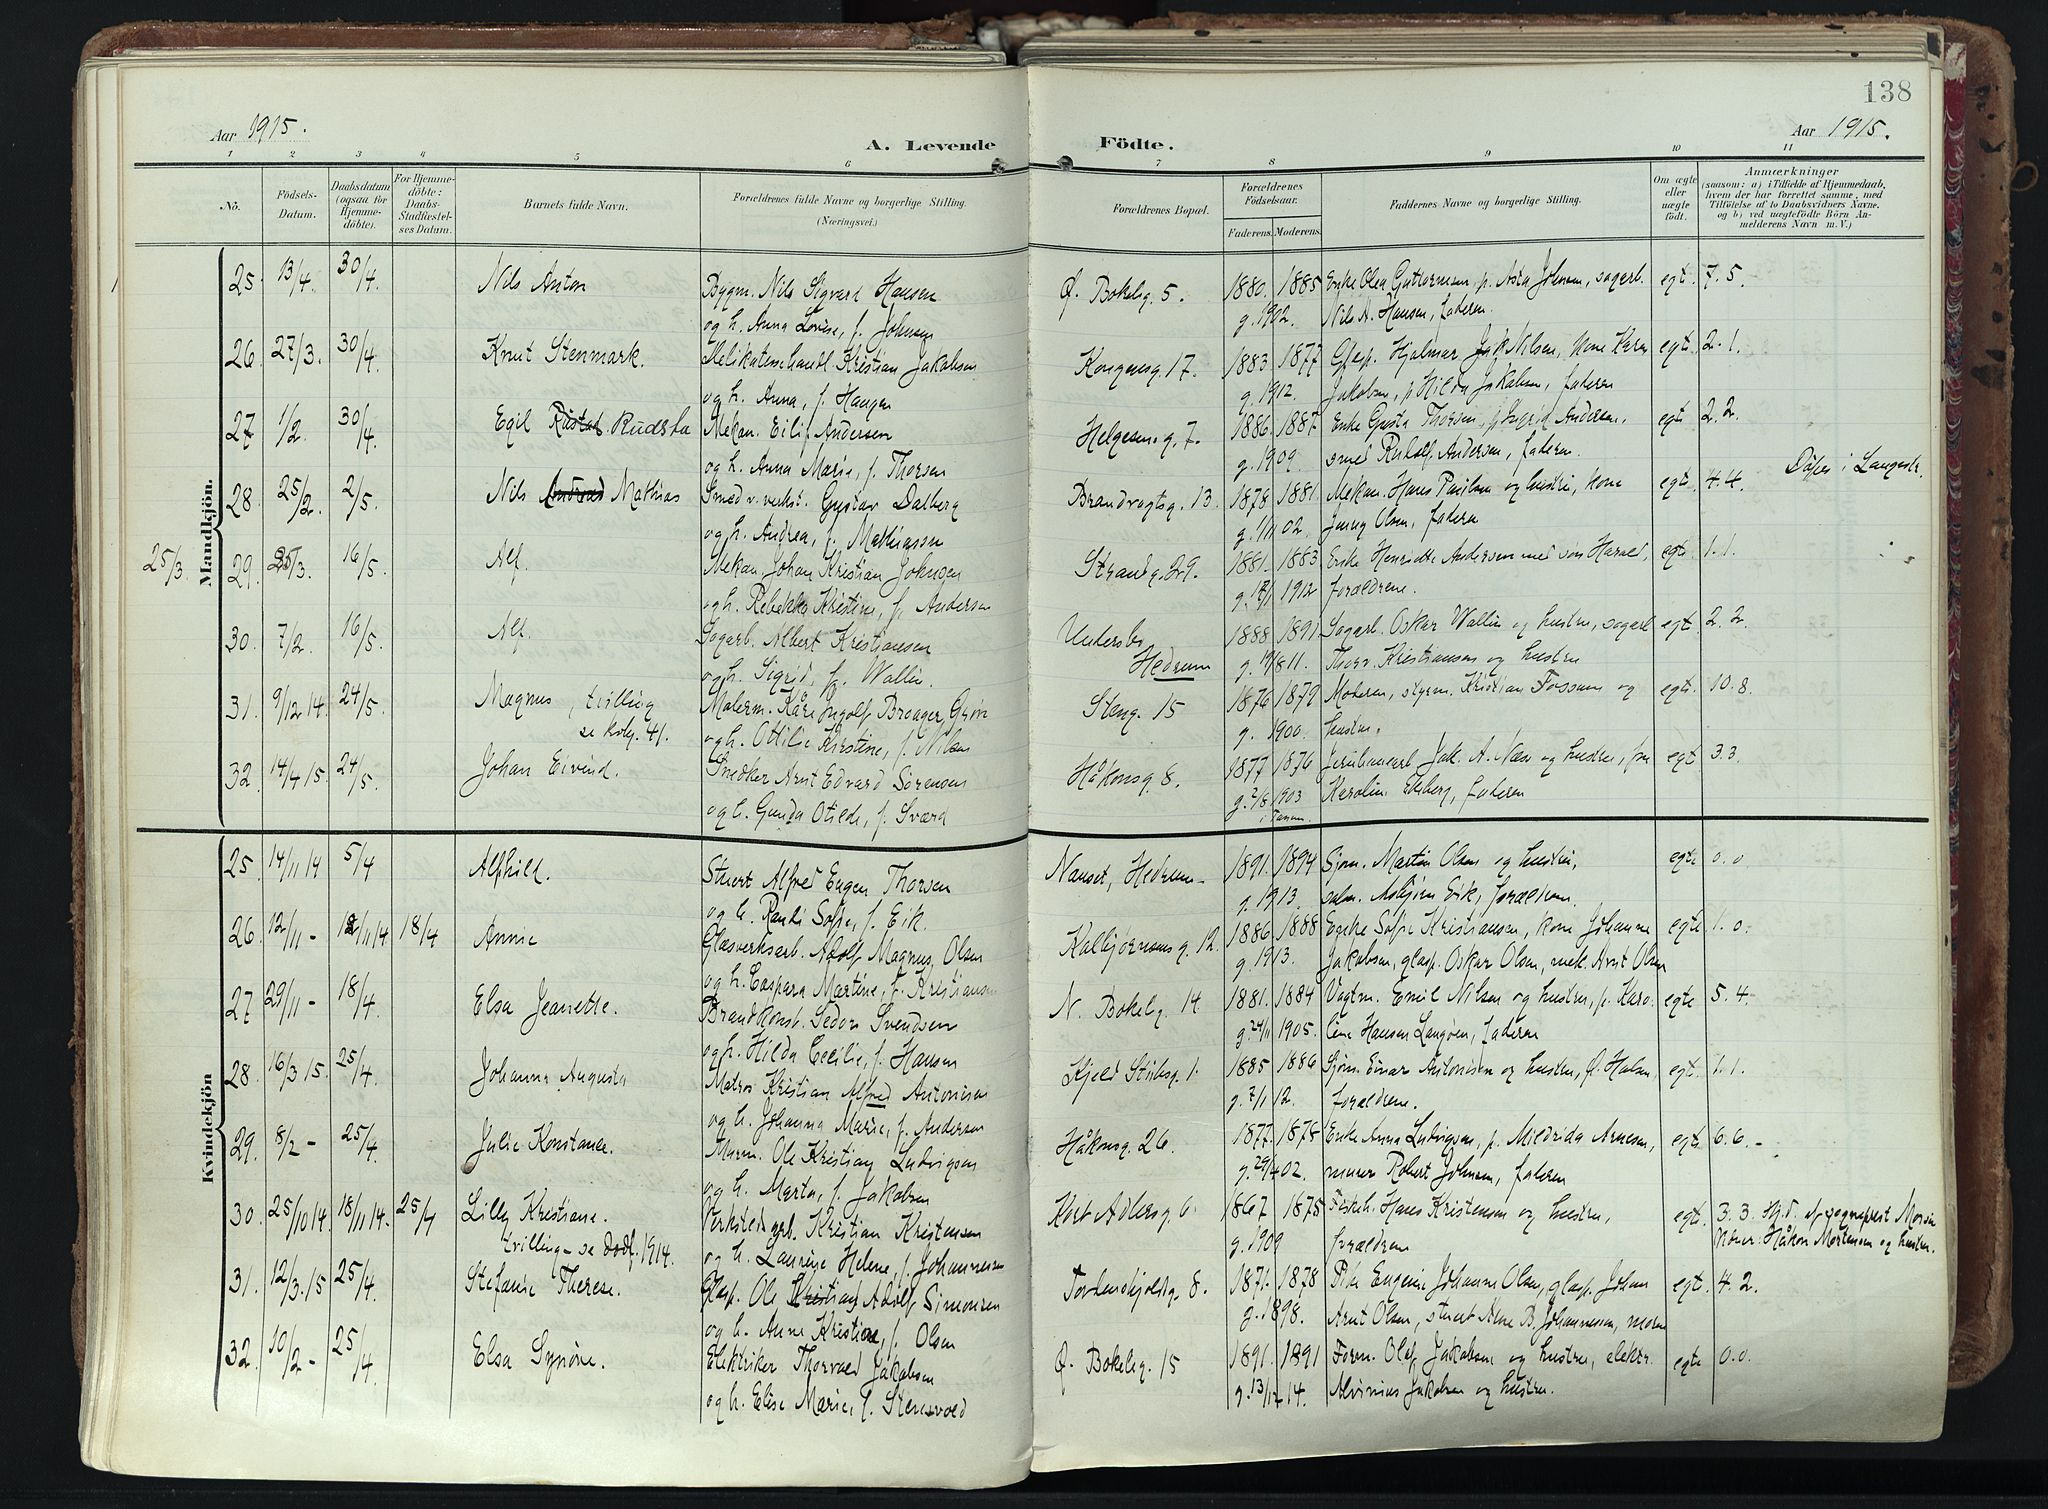 138
Aar 1915.
A. Levende Födte.
Aar 1915.
1 2 3 4 5 6 7 8 9 10 11
No. Födsels-Datum. Daabsdatum (ogsaa for Hjemmedöbte). For Hjemmedöbte: Daabs-Stadfæstelses Datum. Barnets fulde Navn. Forældrenes fulde Navne og borgerlige Stilling. (Næringsvei.) Forældrenes Bopæl. Forældrenes Födselsaar. Faderens. Moderens. Faddernes Navne og borgerlige Stilling. Om ægte eller uægte födt. Anmærkninger (saasom: a) i Tilfælde af Hjemmedaab, hvem der har forrettet samme, med Tilföielse af to Daabsvidners Navne, og b) ved uægtefödte Börn Anmelderens Navn m. V.)
Mandkjön.
25. 13/4. 30/4. Nils Anton Bygm. Nils Sigvard Hansen Ø. Bokelsg. 5. 1880. 1885 Enke Olea Guttormsen, p. Asta Johnsen, sagarb. egt. 7.5.
og h. Anna Lovise, f. Johnsen g. 1902. Nils A. Hansen, faderen
26 27/3. 30/4. Knut Stenmark. Delikatessehandl. Kristian Jakobsen Kongensg. 17. 1883 1877 Glasp. Hjalmar Jak. Nilsen, kone Karen egt. 2.1.
og h. Anna, f. Haugen g. 1912. Jakobsen, p. Hilda Jakobsen, faderen
27 1/2. 30/4. Egil Rudstø Mekan. Eilif Andersen Helgesensg. 7. 1886. 1887. Enke Gusta Thorsen, p. Sigrid Andersen, egt. 2.2.
og h. Anna Marie, f. Thorsen g. 1909. smed Rudolf Andersen, faderen.
28 25/2. 2/5. Nils Andreas Mathias Smed v. verkst. Gustav Dalberg Brandvagtsg. 13. 1878 1881. Mekan. Hans Paulsen og hustru, kone egt. 4.4. Døpt i Langestr.
og h. Andrea, f. Mathiassen g. 1/11 02. Jenny Olsen, faderen
25/3. 29. 25/3. 16/5. Alf. Mekan. Johan Kristian Johnsen Strandg. 29. 1881. 1883 Enke Henriette Andersen med søn Harald, egt. 1.1.
og h. Rebekka Kristine, f. Andersen 1912 forældrene.
30. 7/2. 16/5. Alf. Sagarb. Albert Kristiansen Undersbo 1888 1891. Sagarb. Oskar Wallin og hustru, sagarb. egt. 2.2.
og h. Sigrid, f. Wallin. Hedrum g. 19/8 11. Thorv. Kristiansen og hustru
31. 9/12 14. 24/5. Magnus, tvilling Malerm. Kåre Ingolf Broager Grøn Steng. 15 1876 1879 Moderen, styrm. Kristian Fossum og egt. 10.8.
se kvkj. 41. og h. Ottilie Kirstine, f. Nilsen g. 1900. hustru.
32. 14/4 15. 24/5. Johan Eivind. Snedker Arnt Edvard Sørensen Håkonsg. 8. 1877 1876 Jernbanearb. Jak. A. Næss og hustru, fru egt. 3.3.
og h. Gunda Otilde, f. Sværd g. 2/8 1903 Karoline Edsberg, faderen
Kvindekjön
25. 14/11 14 5/4 Alfhild. Stuert Alfred Eugen Thorsen Nanset, Hedrum 1891. 1894 Sjøm. Martin Olsen og hustru, egte 0.0
og h. Randi Sofie, f. Eik. g. 1913. Eik, forældrene.
26. 12/11 - 18/4 Annie Glasverksarb. Adolf Magnus Olsen Kalbjørnsens g. 12. 1886 1888 Enke Sofie Kristiansen, kone Johanne egte 1.0.
og h. Caspara Martine, f. Kristiansen g. 1913. Jakobsen, glasp. Oskar Olsen, mek. Arnt Olsen
27 29/11 - 18/4. Elsa Jeanette. Brandkonst. Sedon Svendsen N. Bokelsg. 14 1881. 1884 Vagtm. Emil Nilsen og hustru, p. Karo- egte 5.4.
og h. Hilda Cecilie, f. Hansen g. 24/11 1905. line Hansen Langøen, faderen
28. 16/3 15. 25/4. Johanna Augusta Matros Kristian Alfred Antonisen Kjeld Stubsg. 1. 1885 1886 Sjøm. Einar Antonisen og hustru, Ø. Halsen, egt. 1.1.
og h. Johanna Marie, f. Andersen g. 7/1 12. forældrene.
29. 8/2 - 25/4. Julie Konstance. Murm. Ole Kristian Ludvigsen Håkonsg. 26. 1877. 1875 Enke Anna Ludvigsen, p. Mildrida Arnesen, egt. 6.6.
og h. Marta, f. Jakobsen g. 29/4 02. murer Robert Johnsen, faderen
30. 25/10 14. 18/11 14. 25/4 Lilly Kristiane. Verkstedsarb. Kristian Kristensen Kort Adlersg. 6. 1867. 1875 Fiskeh. Hans Kristensen og hustru, egt. 3.3. Hj.d. af sogneprest Morsin
tvilling - se dødf. 1914. og h. Laurine Helene, f. Johannessen g. 1909 forældrene Håkon Mortensen og hustru.
31. 12/3 15 25/4. Stefanie Therese. Glasp. Ole Kristian Adolf Simonsen Tordenskjoldsg. 8. 1871. 1878 Pike Eugenie Johanne Olsen, glasp. Johan egt. 4.2.
og h. Anne Kristine, f. Olsen g. 1898. Arnt Olsen, stuert Arne B. Johannessen, moren
32. 10/2 - 25/4. Elsa Synøve. Elektriker Thorvald Jakobsen Ø. Bokelsg. 15 1891. 1891 Form. Olaf Jakobsen og hustru, elektr. egte 0.0.
og h. Elise Marie, f. Stensvold g. 13/12 14. Alvinius Jakobsen og hustru.